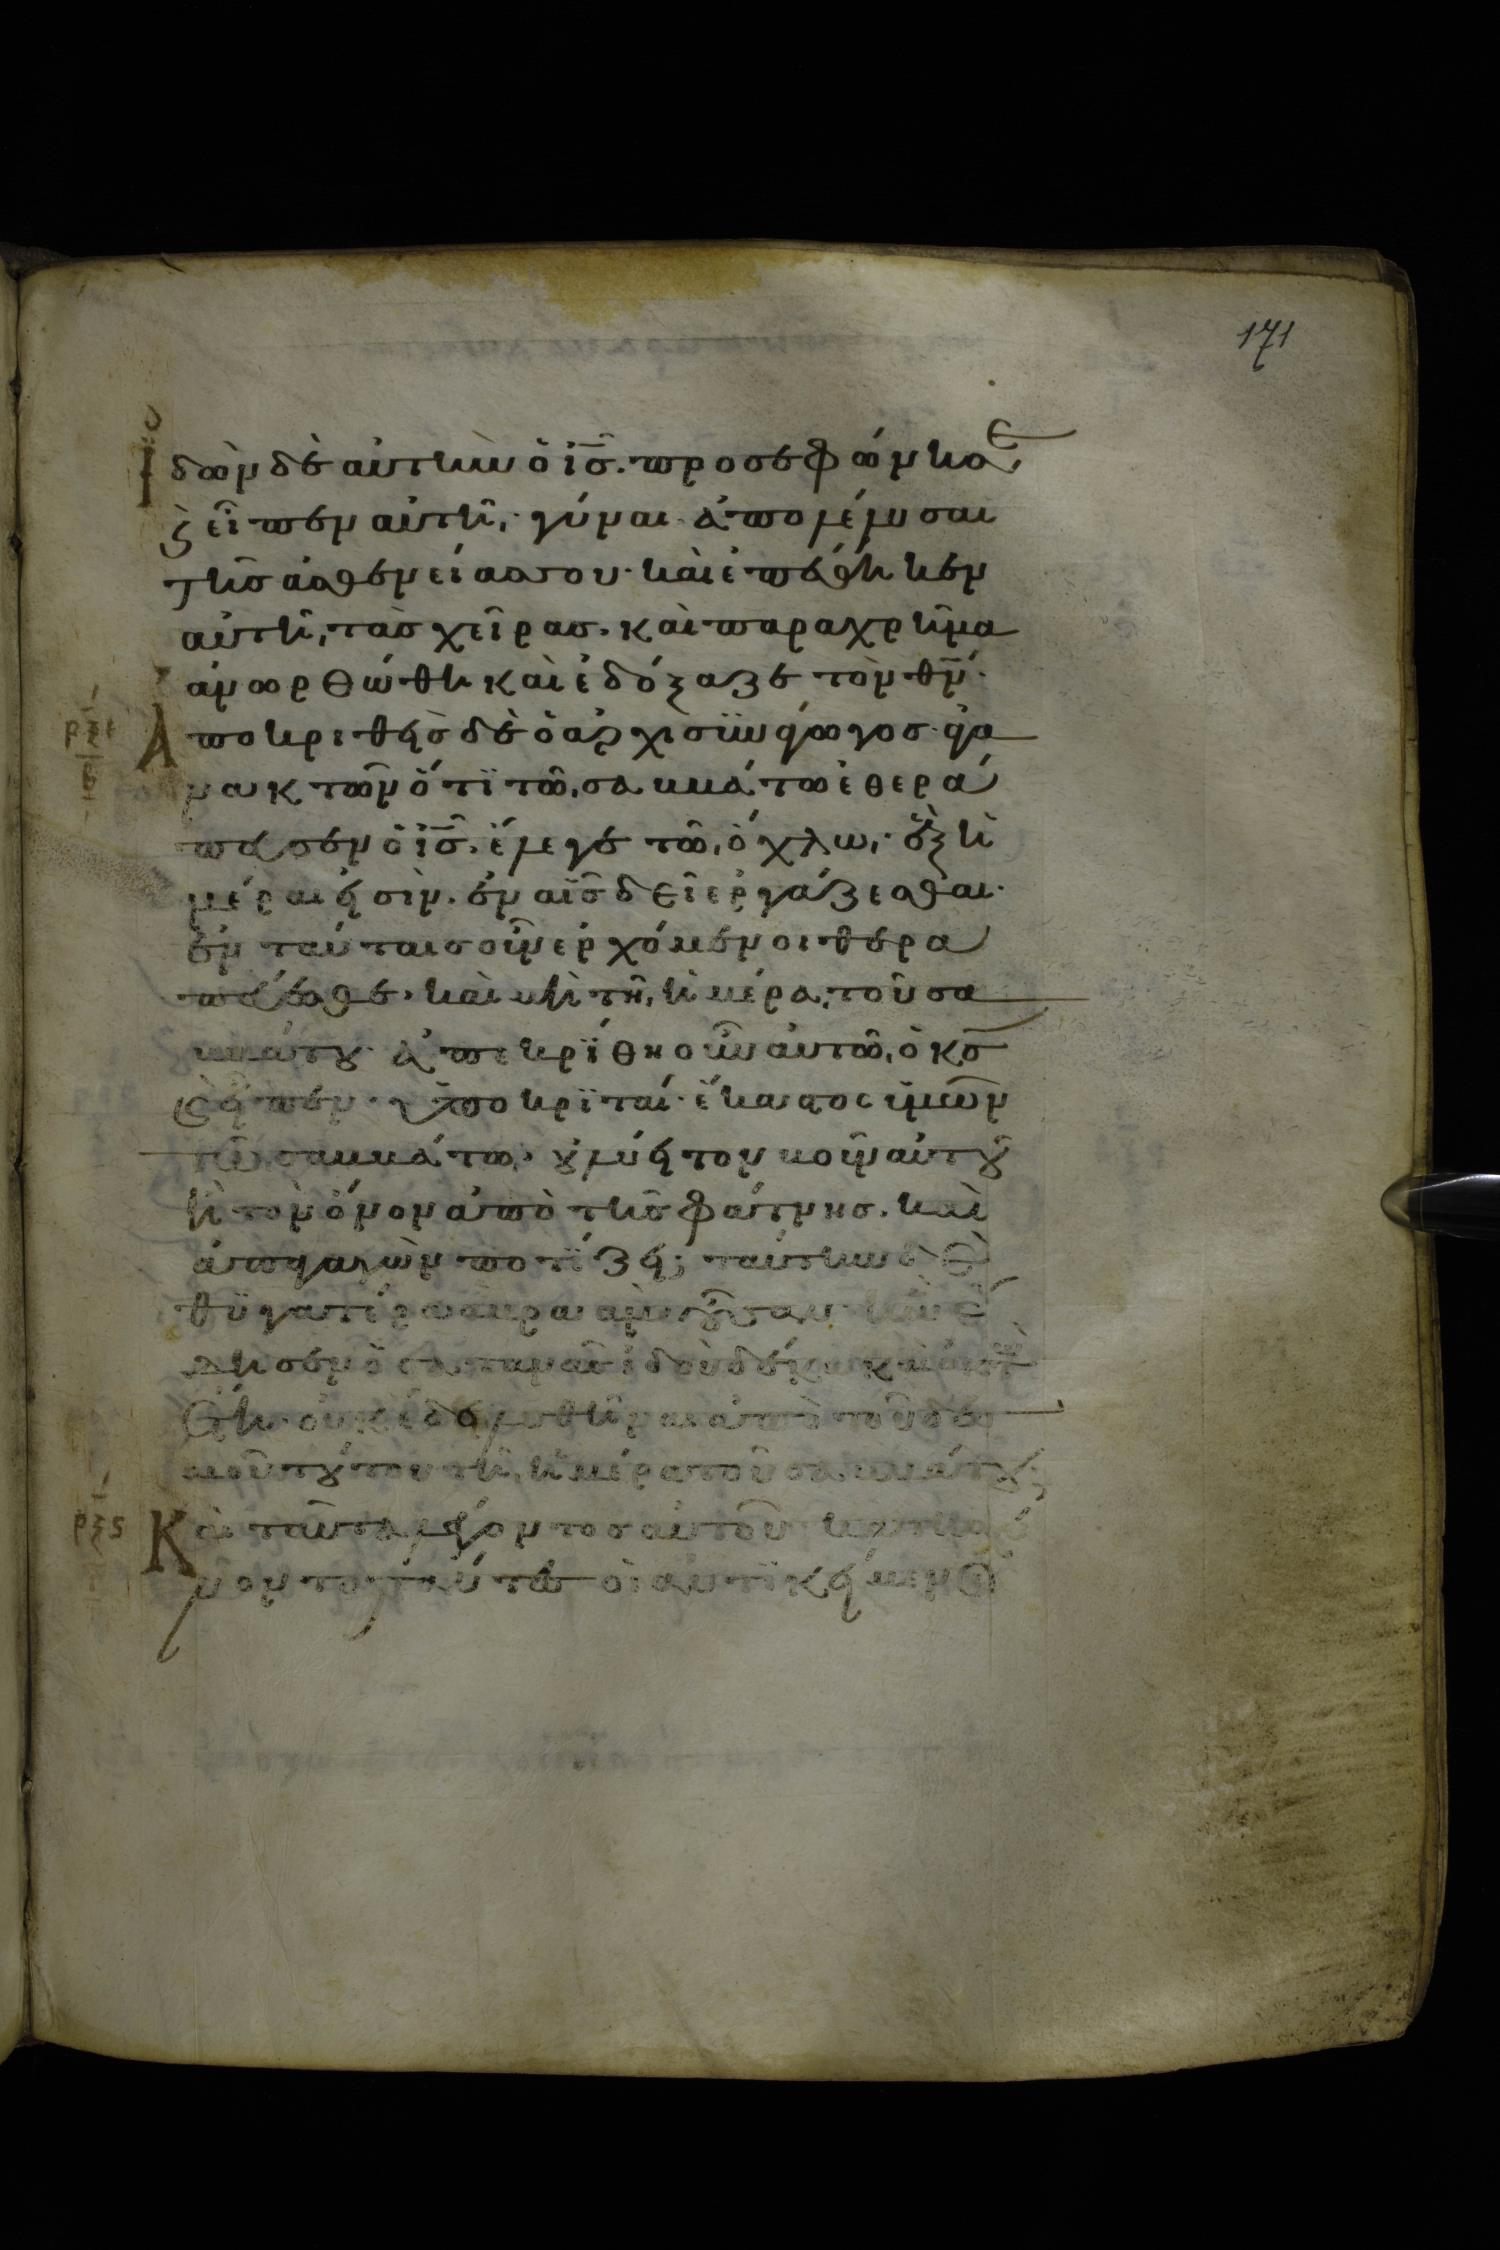 171
Ἰδὼν δὲ αὐτὴν ὁ ἰς̅. προσεφώνησε
ϗ εἶπεν αὐτῆ, γύναι ἀπολέλυσαι
τῆς ἀσθενείας σου· καὶ ἐπέθηκεν
αὐτῆ, τὰς χεῖρας. καὶ παραχρῆμα
ἀνωρθώθη καὶ ἐδόξαζε τὸν θν̅·
ρξε Ἀποκριθεὶς δὲ ὁ ἀρχισϋνάγωγος· ἀγα
νακτῶν ὅτϊ τῶ, σαββάτω ἐθερά
πευσεν ὁ ἰς̅. ἔλεγε τῶ, ὄχλω, ἓξ ἡ
μέραι εἰσὶν. ἐν αἷς δεῖ ἐργάζεσθαι·
ἐν ταύταις οὖν ἐρχόμενοι θερα
πεύεσθε· καὶ μὴ τῆ, ἡμέρα, τοῦ σα
ββάτου· ἀπεκρίθη οὖν αὐτῶ, ὁ κς̅
ϗ εἶπεν· ὑποκρϊταί· ἕκαστος ὑμῶν
τῶ, σαββάτω, οὐ λύει τον βοῦν αὐτοῦ
ἢ τὸν ὄνον ἀπὸ τῆς φάτνης. καὶ
ἀπαγαγὼν ποτΐζει; ταύτην δὲ
θϋγατέρα ἀβραὰμ οὖσαν· ἣν ἔ
δησεν ὁ σατανᾶς ἰδοὺ δέκα καὶ ὀκτὼ
ἔτη· οὐκ ἔδει λυθῆναι ἀπὸ τοῦ δε
σμοῦ τούτου τῆ, ἡμέρα τοῦ σαββάτου;
ρξς Καὶ ταῦτα λέγοντος αὐτοῦ κατησχύ
νοντο πάντες οἱ ἀντϊκείμενοι